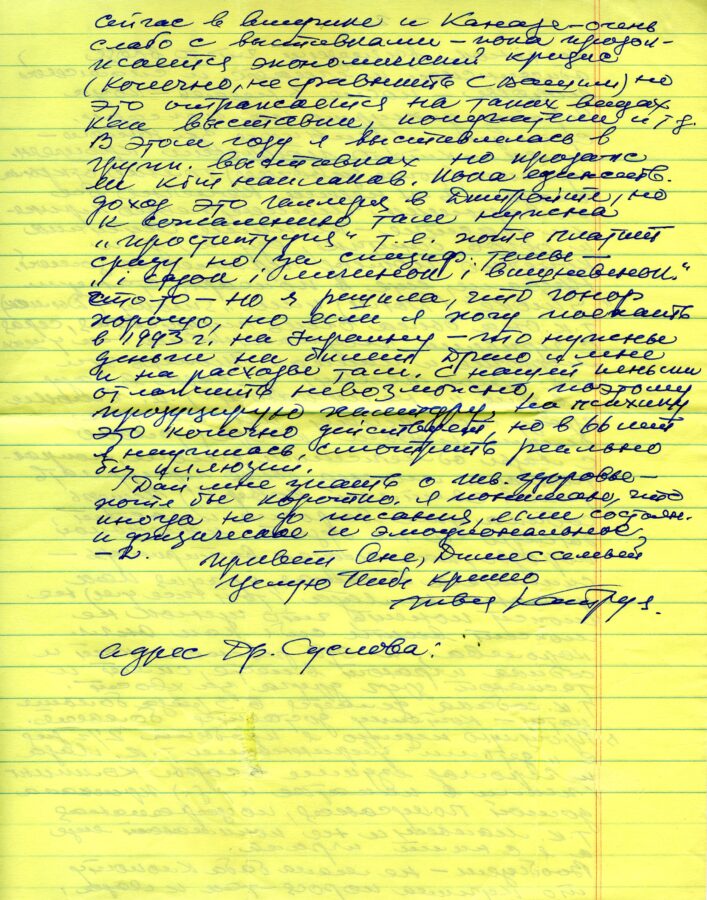 сейчас в Америке и Канаде – очень
слабо с выставками – пока продол-
жается экономический кризис
(конечно, не сравнить с Вашим) но
это отражается на таких вещах
как выставки, покупатели и т д.
В этом году я выставлялась в
групп. выставках но продаж
як кіт наплакав. Пока единств.
доход это галлерея в Дитройте, но
к сожалению там нужна
„проституция" т.е. хотя платит
сразу но на специф. темы –
„і садок і млинок і вишневенький."
что-то – но я решила, что гонор
хорошо, но если я хочу поехать
в 1993 г. на Украину – то нужны
деньги на билет и мне
и на расходы там. С нашей пенсии
отложить невозможно, поэтому
продуцирую, на психику
это конечно действует, но в 66 лет
я научилась смотреть реально
без иллюзий.
Дай мне знать о тв. здоровье –
хотя бы коротко. Я понимаю, что
иногда не до писания, если состоян.
и физическое и эмоциональное
привет Оне, Диме с семьей
Целую тебя крепко
твоя
адрес Др. Суслова: